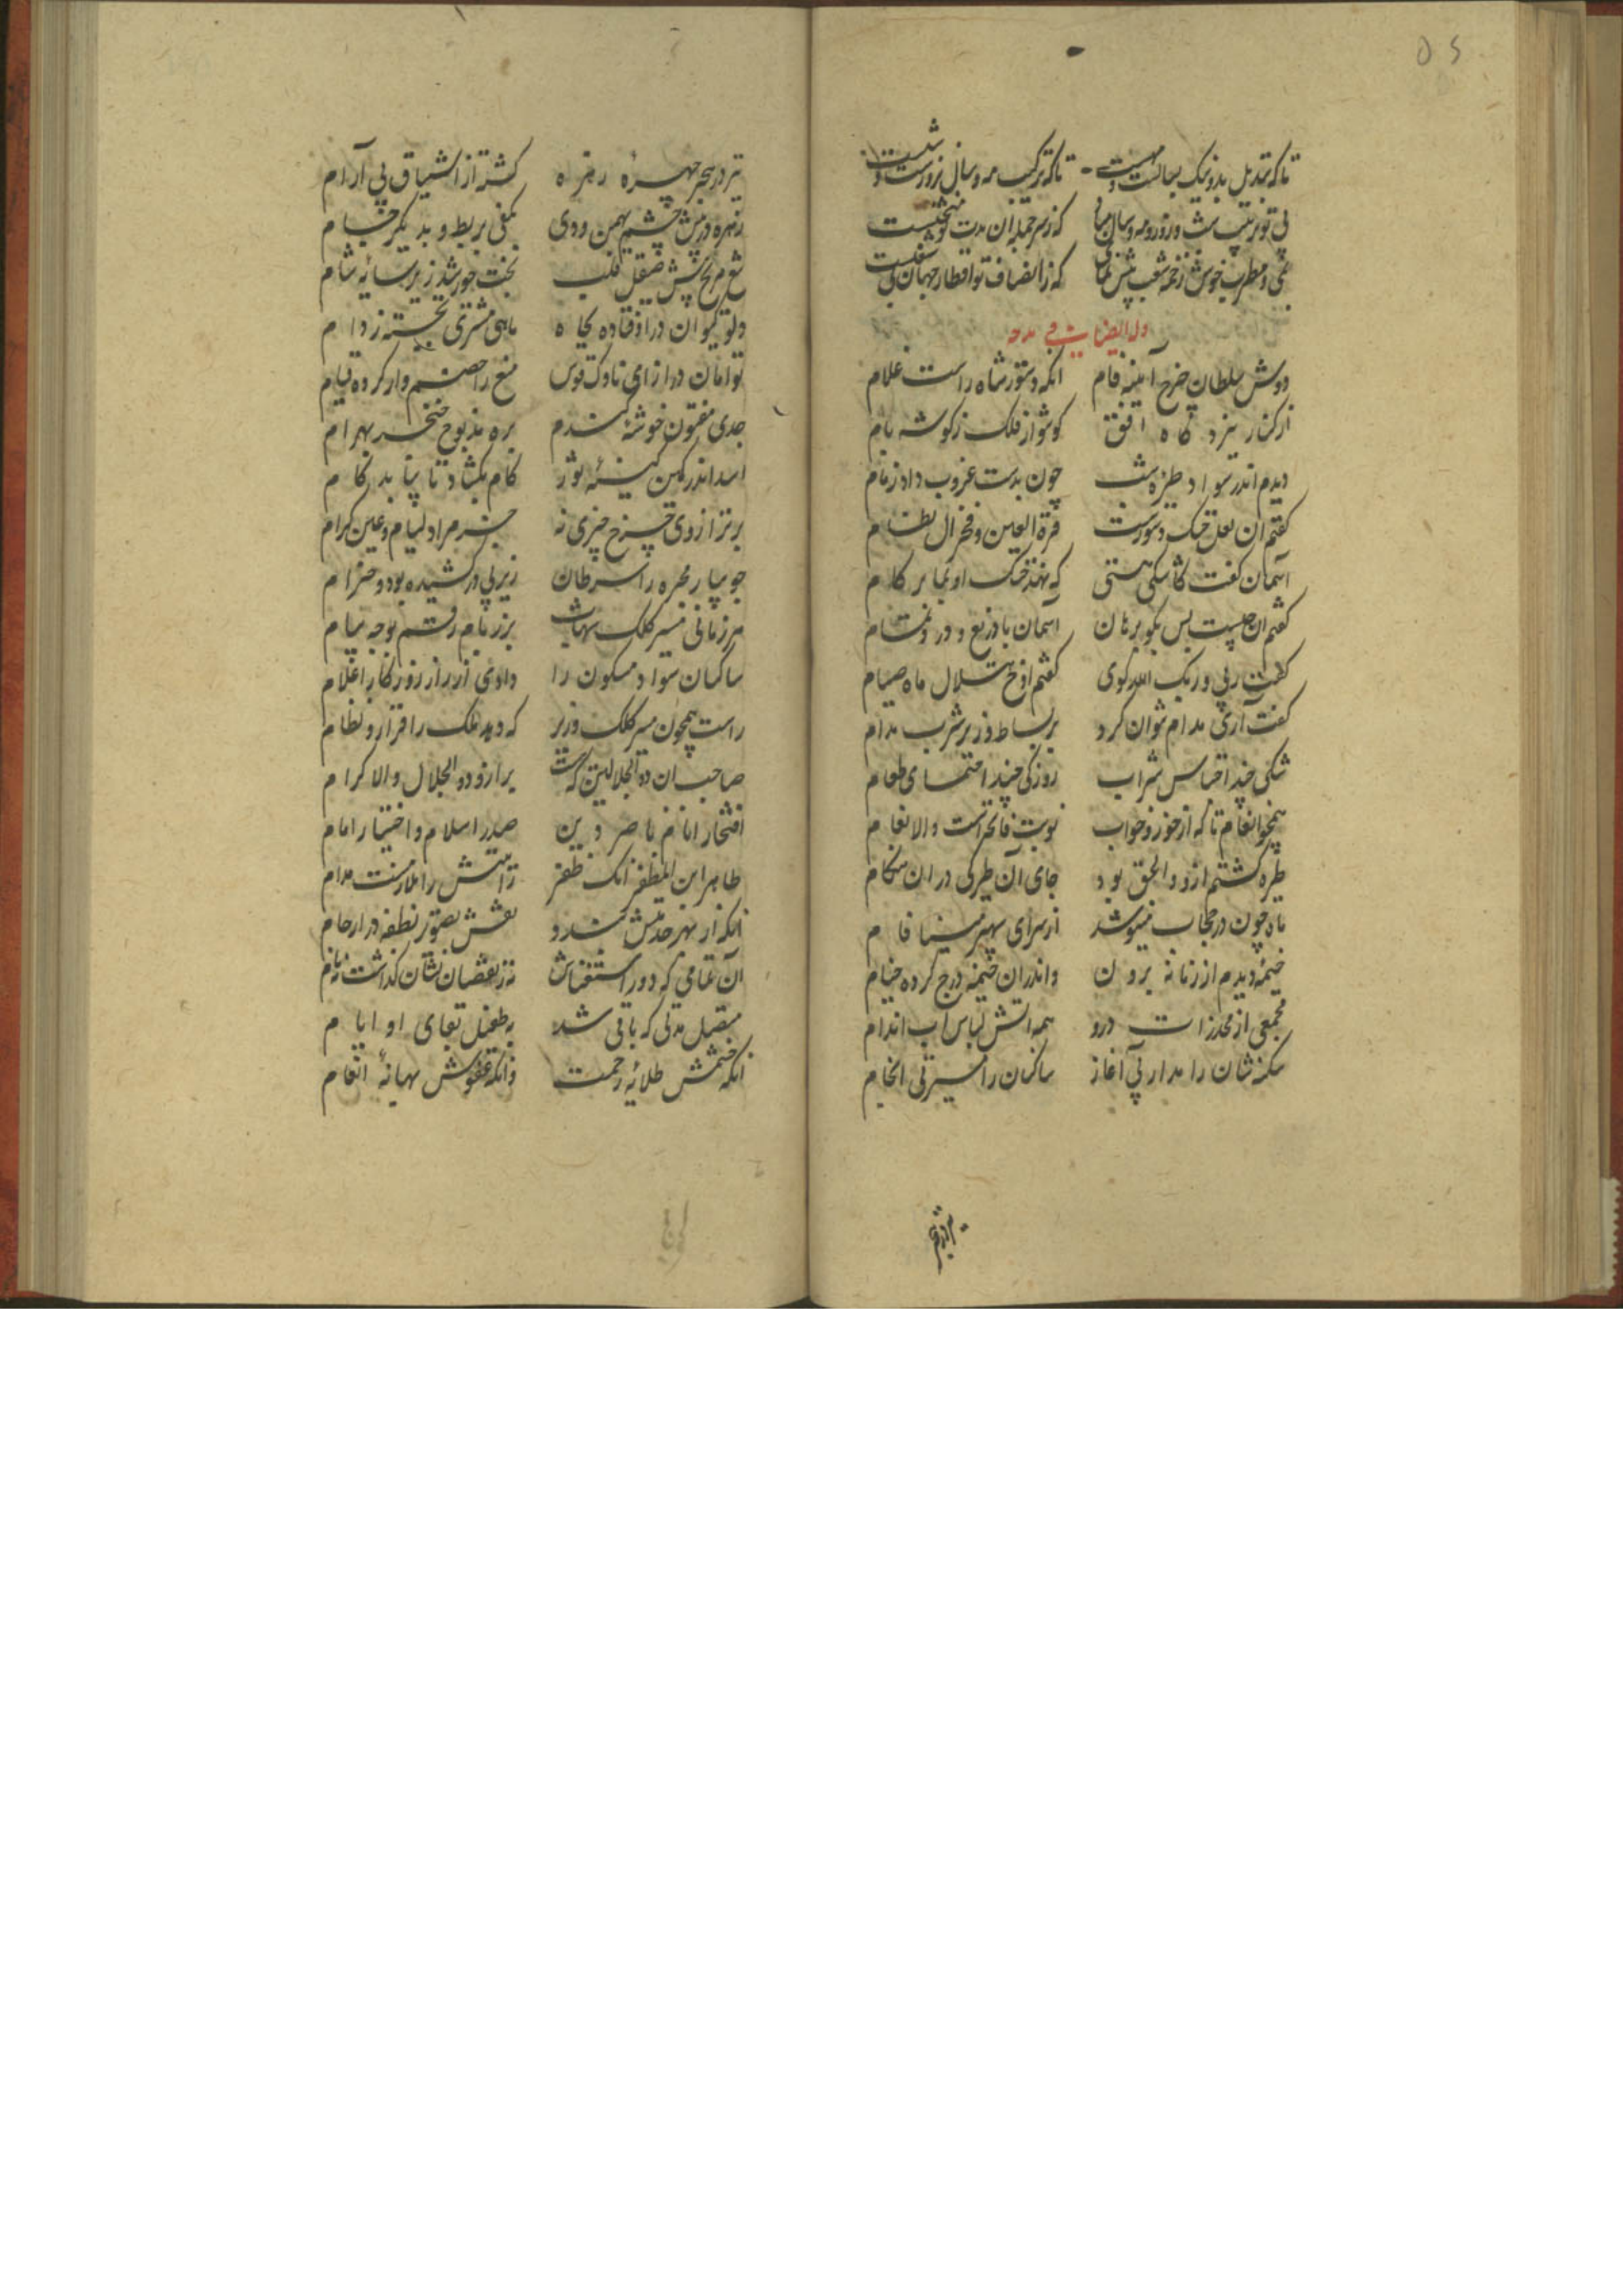 تا که تبدیل بد و نیک بسالست و مهیست تا که ترکیب مه و سال ز روزست و شبست
بی تو ترتیب شب و روز و مه و سال مباد که ز سر جمله آن مدت تو منتخبست
می و مطرب خوش زخمه که ز انصاف تو اقطار جهان بی شغبست
وله ایضا فی مدحه
دوش سلطان چرخ آینه فام آنکه دستور شاه راست غلام
از کنار نبردگاه افق گوشوار فلک ز گوشه بام
دیدم اندر سواد طره شب چون بدست غروب داد زمام
گفتم آن نعل خنک دستورست قرة العین و فخر آل نظام
آسمان گفت کاشکی هستی که نهد خنک او بما بر گام
گفتم آن چیست پس بگو برهان آسمان با دریغ و درد تمام
گفت ربی و ربک الله گوی گفتم اوخ هلال ماه صیام
گفت آری مدام نتوان کرد بر بساط وزیر شرب مدام
شبکی چند احتباس شراب روزکی چند احتمای طعام
همچو انعام تا که از خور و خواب نوبت فاتحه است والانعام
طیره گشتم ازو و الحق بود جای آن طیرگی در آن هنگام
ماه چون در حجاب میشد از سرای سپهر مینا فام
خیمه دیدم از زمانه برون و اندر آن خیمه درج کرده خیام
مجمعی از مخدرات درو همه آتش لباس آب اندام
سکنه شان را مدار بی آغاز ساکنان را مسیر بی انجام
تیر در هجر
تیر در هجر چهره زهره گشته از اشتیاق بی آرام
زهره در پیش چشم بهمن و دی بکفی بربط و بدیگر جام
تیغ مریخ پیش صیقل قلب تخت خورشید زیر سایه شام
دلو کیوان در اوفتاده بچاه ماهی مشتری بجسته ز دام
توامان در ازای ناوک قوس منع را خصم وار کرده قیام
جدی مفتون خوشه گندم بره مذبوح خنجر بهرام
اسد اندر کمین کینه ثور کام بگشاد تا بیابد کام
برتر از وی چرخ چیزی نه جز مراد لیام و عین کرام
جویبار مجره را سرطان زیر پی در کشیده بود و خرام
هر زمانی مسیر کلک شهاب بزدر بام رستم بوجه پیام
ساکنان سواد مسکون را دادی از راز روزگار اعلام
راست همچون مسیر کلک وزیر که دهد ملک را قرار و نظام
صاحب آن ذو الجلالین که برازد ذو الجلال والاکرام
افتخار انام ناصر دین صدر اسلام و اختیار امام
طاهر ابن المظفر آنک ظفر رایتش را ملازمست مدام
آنکه از بهر خدمتش بندد نقش تصویر نطفه در ارحام
آن تمامی که دور استغناش نز نقصان نشان گذاشت نه نام
مقبل مدتی که باقی شد به طفیل بقای او ایام
آنکه خشمش طلایه رحمت وآنکه عفوش بهانه انعام